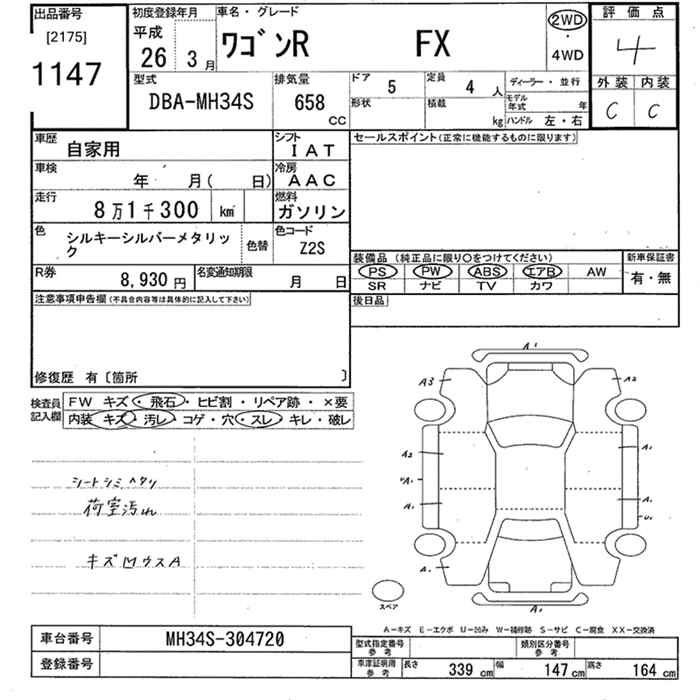 出品番号
[2175]
1147
初度登録年月
平成
26 3月
車名・グレード
ワゴンR FX
2WD
・
4WD
評価点
4
外装 内装
C C
型式
DBA-MH34S
排気量
658
CC
ドア
5
定員
4 人
形状
積載
kg
ディーラー・並行
モデル年式 年
ハンドル 左・右
車歴
自家用
シフト
IAT
車検
年 月( 日)
冷房
AAC
走行
8万1千300 km
燃料
ガソリン
色
シルキーシルバーメタリック
色替
色コード
Z2S
R券
8,930 円
名変通知期限
月 日
セールスポイント(正常に機能するものに限ります)
装備品 (純正品に限り○をつけてください)
PS PW ABS エアB AW
SR ナビ TV カワ
新車保証書
有・無
後日品
注意事項申告欄(不具合内容等は具体的に記入して下さい)
修復歴 有〔箇所 〕
検査員記入欄
FW キズ・飛石・ヒビ割・リペア跡・×要
内装 キズ・汚レ・コゲ・穴・スレ・キレ・破レ
シートシミ ヘタリ
荷室汚れ
キズ凹ウスA
A1
A3
A2
A2
A1
A1
A1
U1
A1
A1
スペア
A-キズ E-エクボ U-凹み W-補修跡 S-サビ C-腐食 XX-交換済
車台番号
MH34S-304720
登録番号
型式指定番号
参考
類別区分番号
参考
車検証明用
参考
長さ 339 cm
幅 147 cm
高さ 164 cm